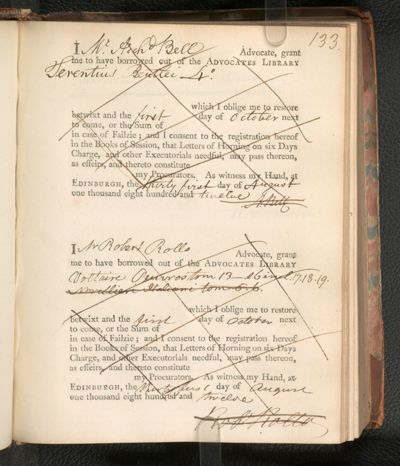 133.
I Mr. Archd Bell Advocate, grant
me to have borrowed out of the ADVOCATES LIBRARY
Terentius 4o
which I oblige me to restore
betwixt and the first day of October next
to come, or the Sum of
in case of Failzie; and I consent to the registration hereof
in the Books of Session, that Letters of Horning on six Days
Charge, and other Executorials needful, may pass thereon,
as effeirs, and thereto constitute
my Procurators. As witness my Hand, at
EDINBURGH, the thirty first day of August
one thousand eight hundred and twelve
A Bell
I Mr Robert Rollo Advocate, grant
me to have borrowed out of the ADVOCATES LIBRARY
Voltaire tom 13 17.18.19.
Novellieri Italiani tom 6.
which I oblige me to restore
betwixt and the first day of October next
to come, or the Sum of
in case of Failzie; and I consent to the registration hereof
in the Books of Session, that Letters of Horning on six Days
Charge, and other Executorials needful, may pass thereon,
as effeirs, and thereto constitute
my Procurators. As witness my Hand, at
EDINBURGH, the thirty first day of August
one thousand eight hundred and twelve
Robt Rollo